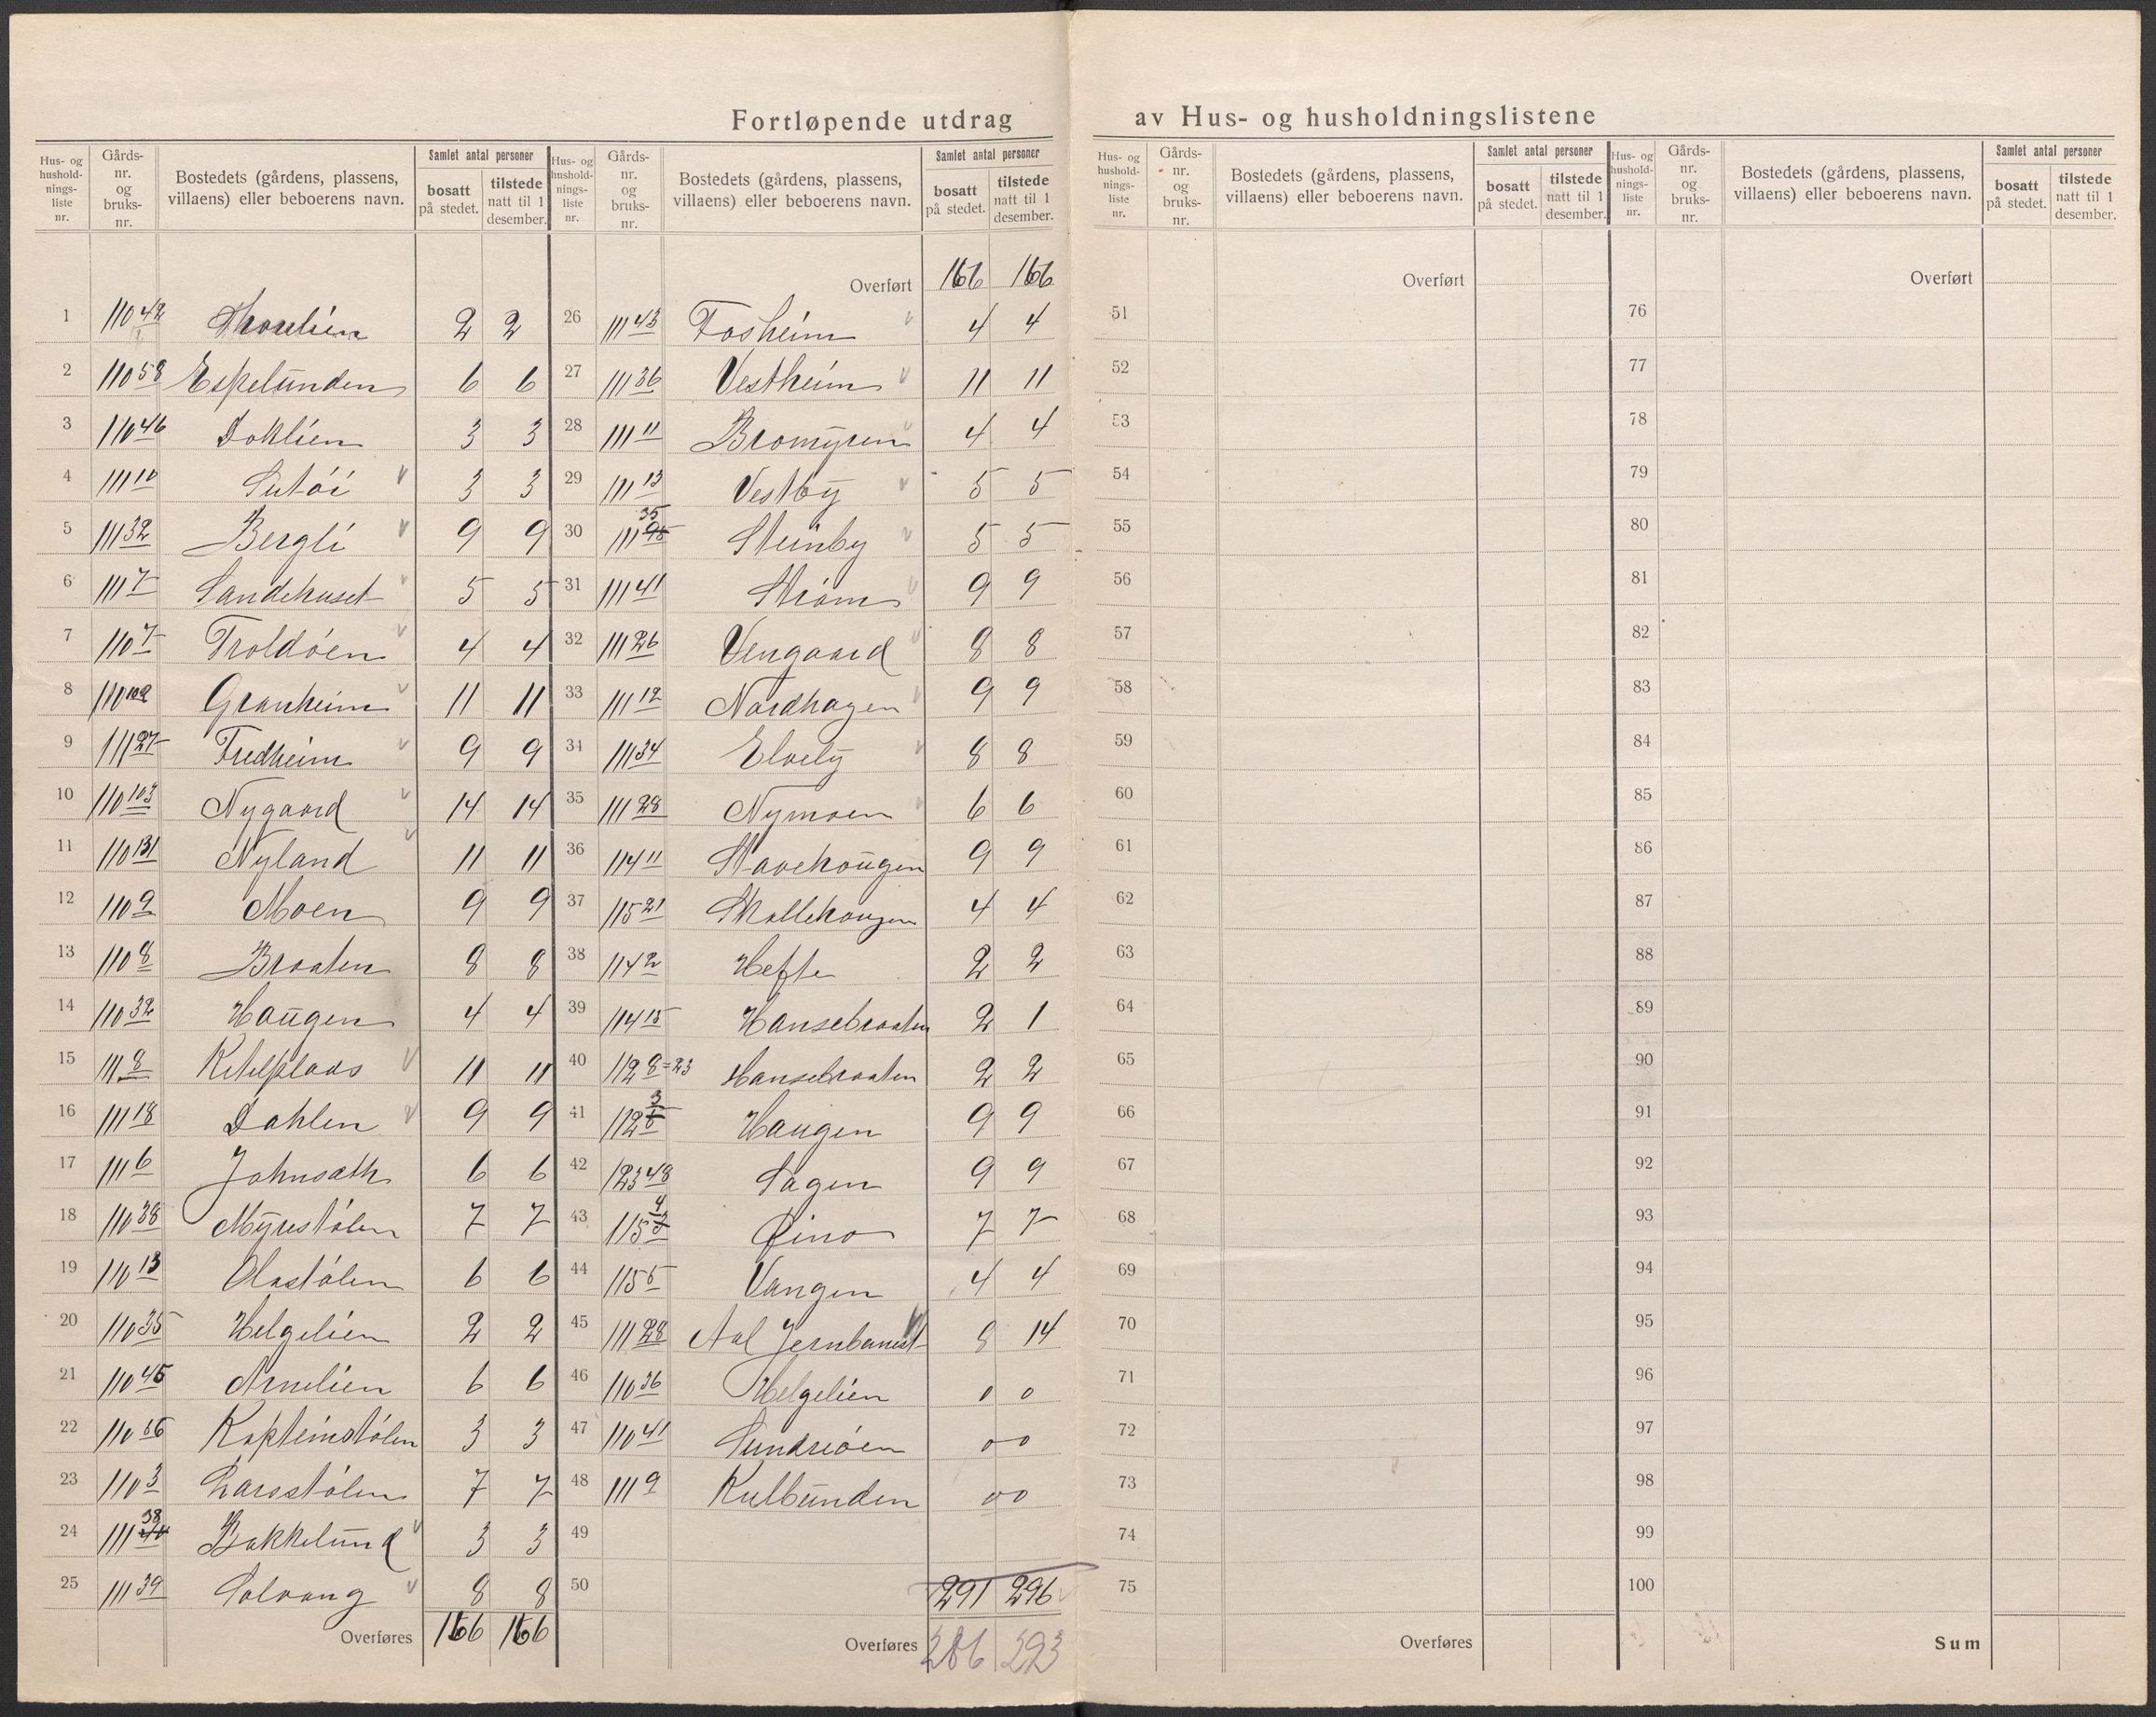 Fortløpende utdrag av Hus- og husholdningslistene
Hus- og husholdnings-liste nr. Gårds-nr. og bruks-nr. Bostedets (gårdens, plassens, villaens) eller beboerens navn. Samlet antal personer bosatt på stedet. tilstede natt til 1 desember.
1 110 42 2 2
2 110 58 Espelunden 6 6
3 110 46 Doklien 3 3
4 111 10 3 3
5 111 32 Bergli 9 9
6 111 7 Sandehuset 5 5
7 110 7 Troldøen 4 4
8 110 102 Granheim 11 11
9 111 27 Fredheim 9 9
10 110 103 Nygaard 14 14
11 110 131 Nyland 11 11
12 110 9 Moen 9 9
13 110 8 Braaten 8 8
14 110 32 Haugen 4 4
15 111 8 Ketilplads 11 11
16 111 18 Dahlen 9 9
17 111 6 Johnsæth 6 6
18 110 38 Myrestølen 7 7
19 110 13 Olastølen 6 6
20 110 35 Helgelien 2 2
21 110 45 Arnelien 6 6
22 110 Kapteinstølen 3 3
23 110 3 Larsstølen 7 7
24 111 38 Bakkelund 3 3
25 111 39 Solvang 8 8
Overføres 166 166
Hus- og husholdnings-liste nr. Gårds-nr. og bruks-nr. Bostedets (gårdens, plassens, villaens) eller beboerens navn. Samlet antal personer bosatt på stedet. tilstede natt til 1 desember.
Overført 166 166
26 111 43 Fosheim 4 4
27 111 36 Vestheim 11 11
28 111 11 Bromyren 4 4
29 111 13 Vestby 5 5
30 111 35 Steinby 5 5
31 111 41 Strøm 9 9
32 111 26 Vengaard 8 8
33 111 12 Nordhagen 9 9
34 111 34 Elvely 8 8
35 111 28 Nymoen 6 6
36 114 11 Stavehougen 9 9
37 115 21 Skollehougen 4 4
38 114 2 Hefte 2 2
39 114 15 Hansebraaten 2 1
40 112 8=23 Hansebraaten 2 2
41 112 3 Haugen 9 9
42 123 48 Sagen 9 9
43 115 4 7 7
44 115 5 Vangen 4 4
45 111 28 Aal Jernbanest 8 14
46 110 36 Helgelien 0 0
47 110 41 Sundreøen 0 0
48 111 9 Kulbunden 0 0
49
50
291 296
Overføres 286 293
Hus- og husholdnings-liste nr. Gårds-nr. og bruks-nr. Bostedets (gårdens, plassens, villaens) eller beboerens navn. Samlet antal personer bosatt på stedet. tilstede natt til 1 desember.
Overført
51
52
53
54
55
56
57
58
59
60
61
62
63
64
65
66
67
68
69
70
71
72
73
74
75
Overføres
Hus- og husholdnings-liste nr. Gårds-nr. og bruks-nr. Bostedets (gårdens, plassens, villaens) eller beboerens navn. Samlet antal personer bosatt på stedet. tilstede natt til 1 desember.
Overført
76
77
78
79
80
81
82
83
84
85
86
87
88
89
90
91
92
93
94
95
96
97
98
99
100
Sum